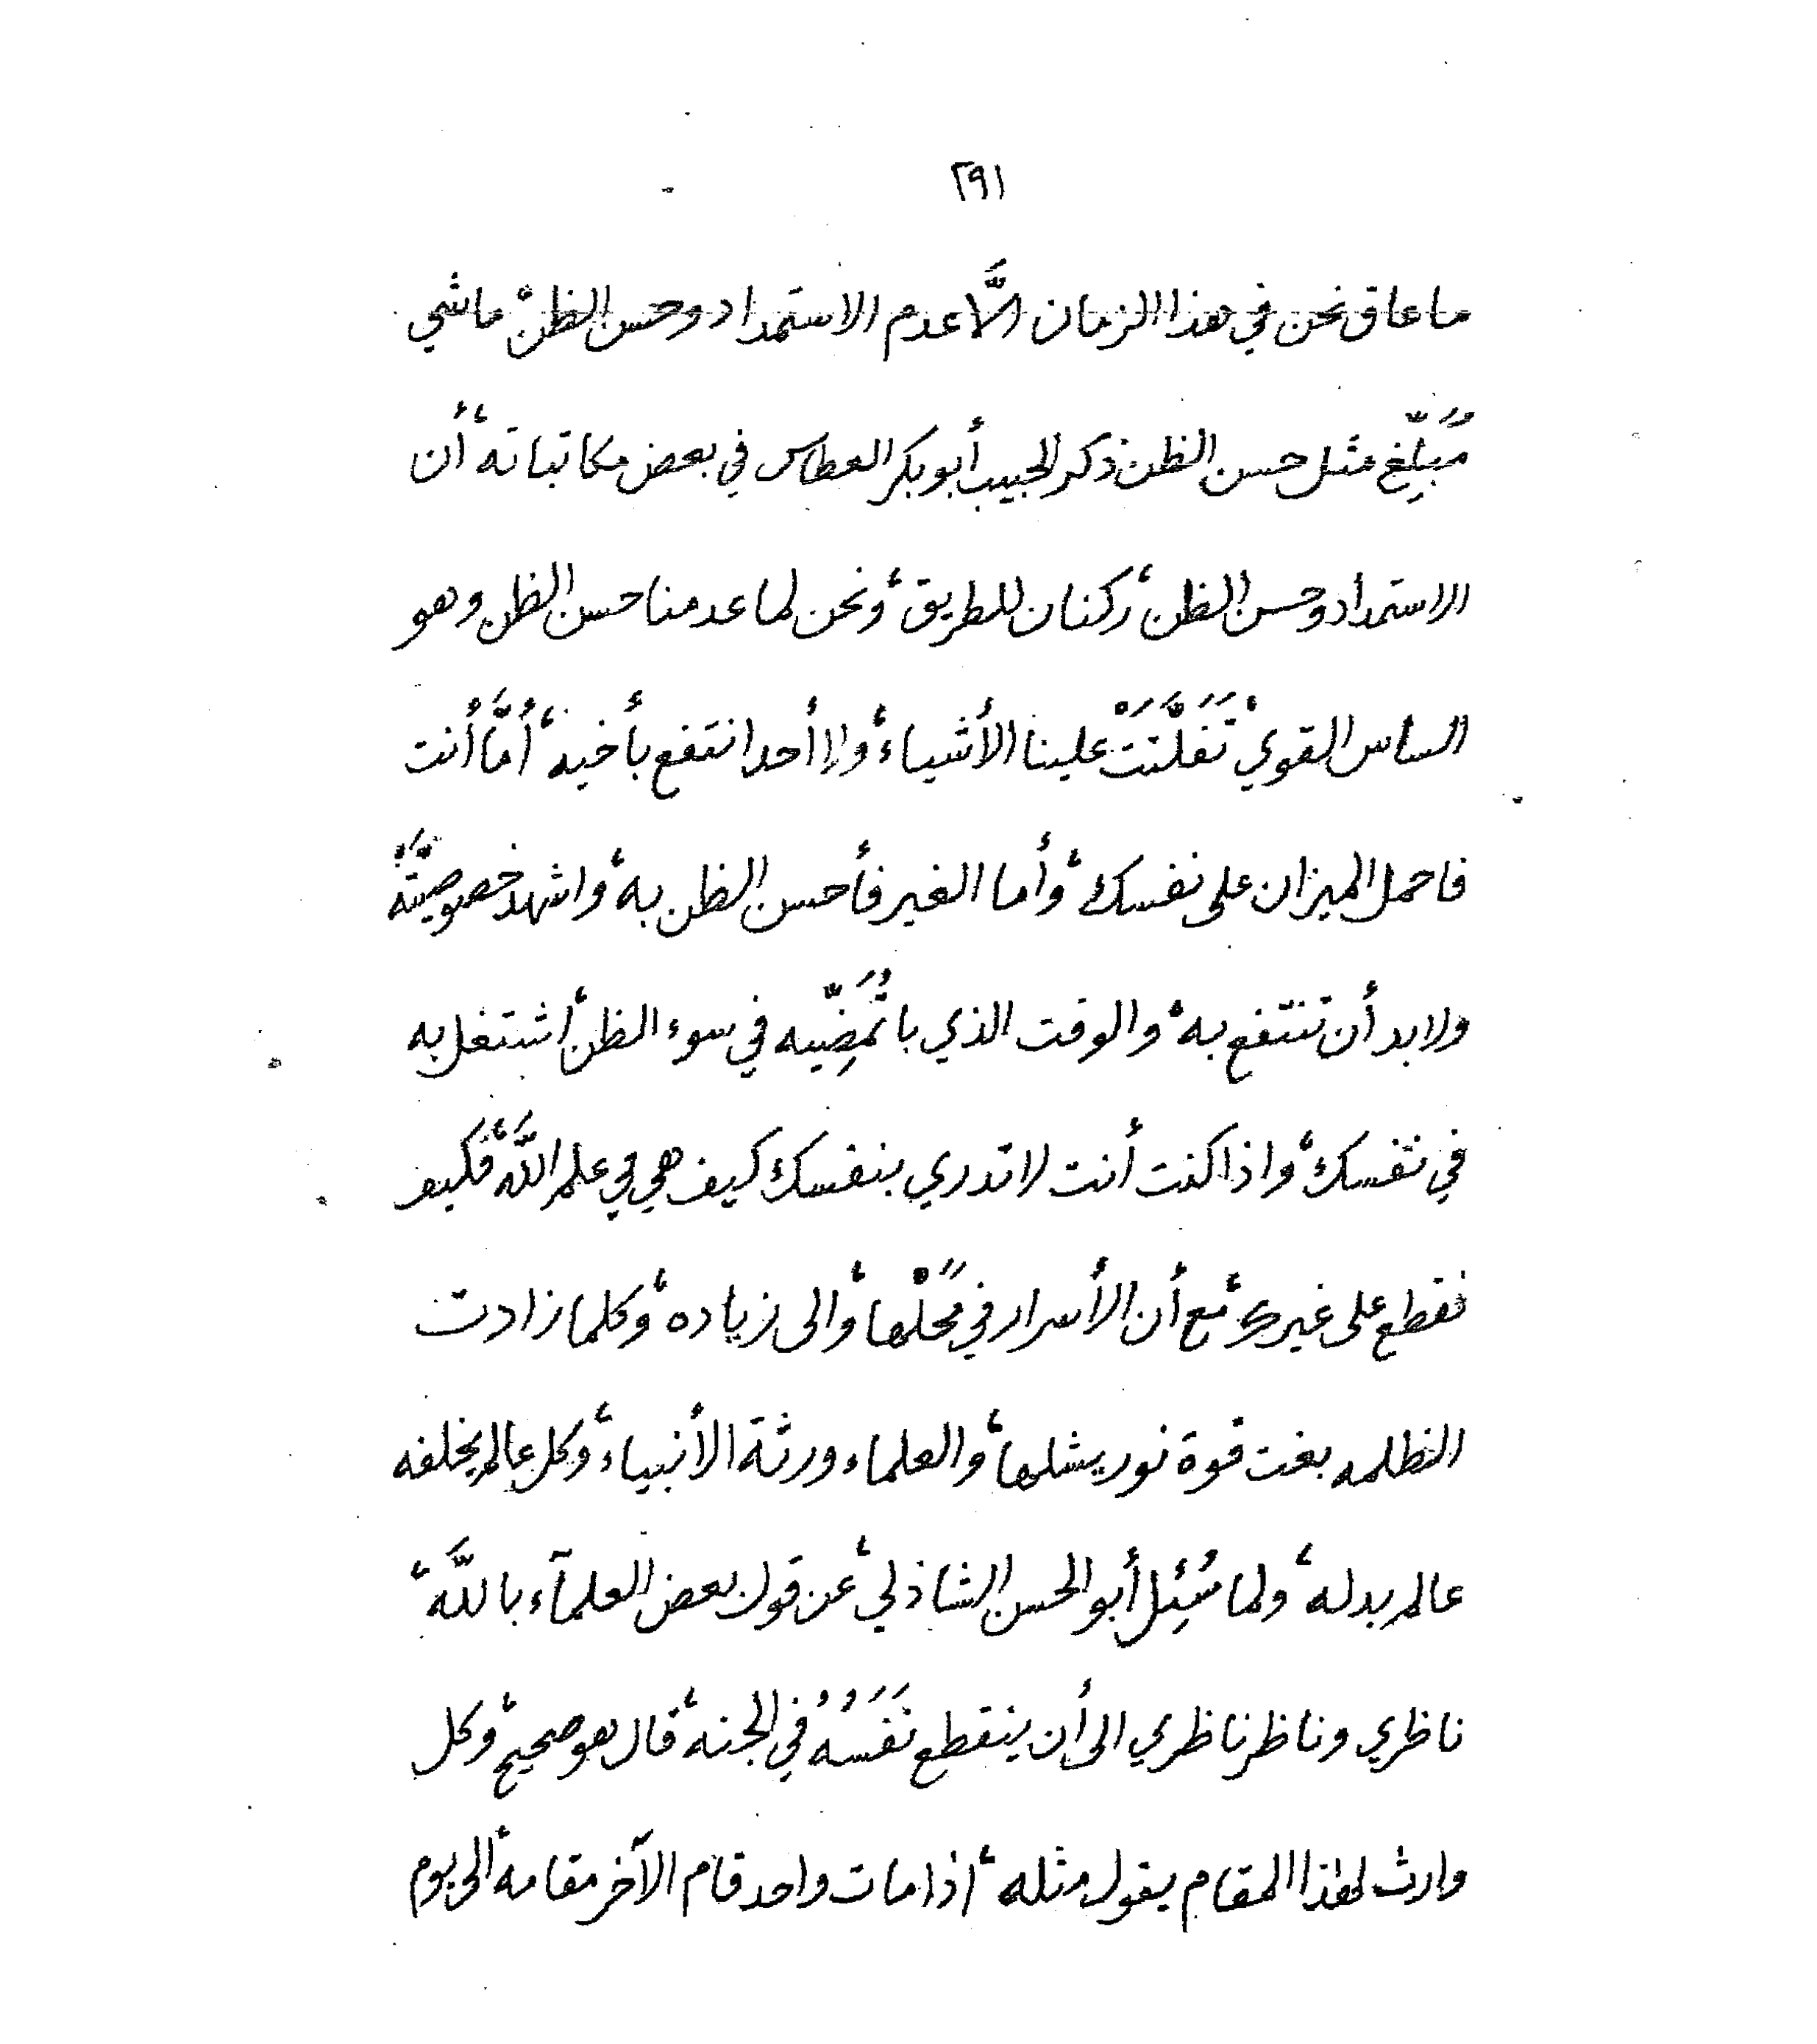 ٢٩١
ما عاق نحن في هذا الزمان الَّا عدم الاستمداد وحسن الظن، ماشي
مُبَلِّغ مثل حسن الظن ذكر الحبيب أبوبكر العطاس في بعض مكاتباته، أن
الاستمداد وحسن الظن، ركنان للطريق، ونحن لما عدمنا حسن الظن وهو
الساس القوي، تَفَلَّتَتْ علينا الأشياء، ولا أحد انتفع بأخيه، أمَّا أنت
فاحمل الميزان على نفسك، وأما الغير فأحسن الظن به، واشهد خصوصيَّتَهُ
ولا بد أن تنتفع به، والوقت الذي باتُمَضِّيه في سوء الظن، اشتغل به
في نفسك، واذا كنت أنت لا تدري بنفسك كيف هي في علم اللَّه، فكيف
نقطع على غيرك، مع أن الأسرار في مَحَلْها، والى زياده، وكلما زادت
الظلمه بغت قوة نور يشلها، والعلماء ورثة الأنبياء، وكل عالم يخلفه
عالم بدله، ولما سُئِل أبو الحسن الشاذلي، عن قول بعض العلمآء باللَّه،
ناظري وناظر ناظري الى أن ينقطع نَفَسُهُ في الجنه، قال هو صحيح، وكل
وارث لهذا المقام يقول مثله، اذا مات واحد قام الآخر مقامه، الى يوم